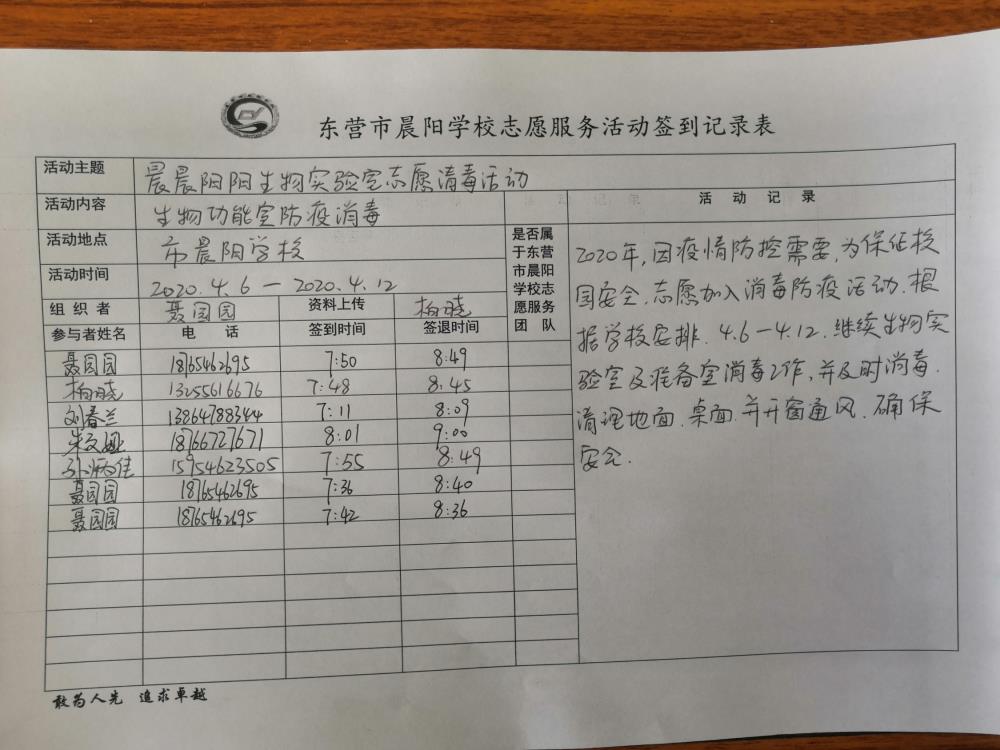 东营市晨阳学校志愿服务活动签到记录表
活动主题 晨晨阳阳生物实验室志愿消毒活动
活动内容 生物功能室防疫消毒
活动地点 市晨阳学校
活动时间 2020.4.6—2020.4.12
组织者 聂园园 资料上传 柏晓
参与者姓名 电话 签到时间 签退时间
是否属
于东营
市晨阳
学校志
愿服务
团队
聂园园 18765462695 7:50 8:49
柏晓 13255616676 7:48 8:45
刘春兰 13864788344 7:11 8:09
朱文娅 18766727671 8:01 9:00
孙炳佳 15954623505 7:55 8:49
聂园园 18765462695 7:36 8:40
聂园园 18765462695 7:42 8:36
活动记录
2020年,因疫情防控需要,为保证校
园安全,志愿加入消毒防疫活动.根
据学校安排.4.6—4.12.继续生物实
验室及准备室消毒工作,并及时消毒.
清理地面.桌面.并开窗通风.确保
安全.
敢为人先 追求卓越